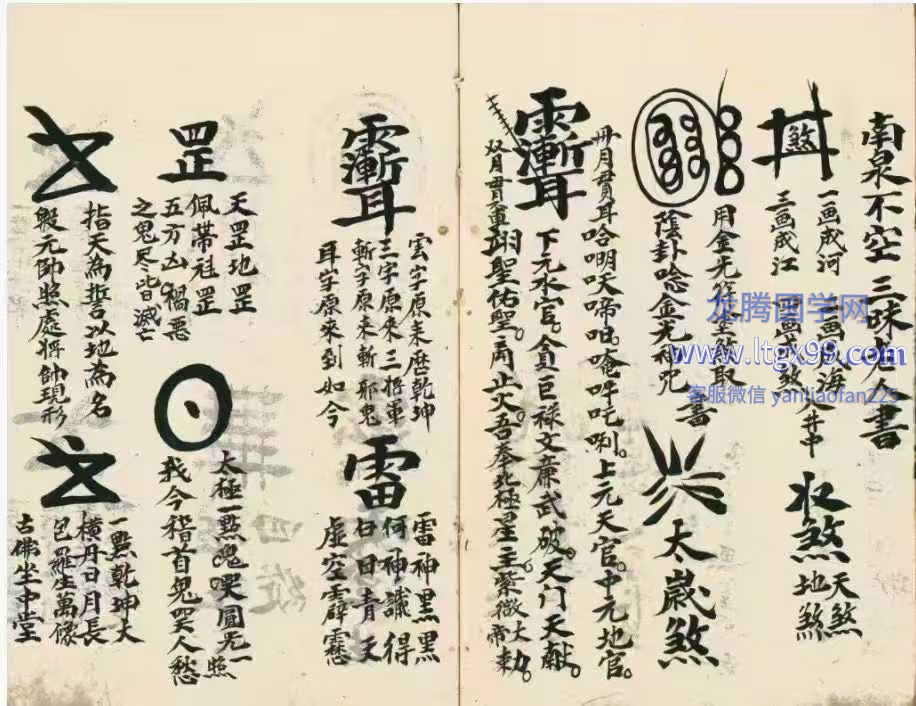 南泉不空三昧老人書
煞
一画成河
二画成海
三画成江
四画成煞
入井中
収煞
天煞
地煞
用金光作金煞取
陰卦唸金光神咒
書
太歲煞
卅月貫耳哈𠵇呋啼呾。唵吽吒唎。上元天官。中元地官。
下元水官。貪巨禄文廉武破。天门天猷。
翊聖佑聖。南止火吾奉北極星主紫微大帝勅。
雲字原来歷乾坤
三字原来三将軍
斬字原来斬邪鬼
耳字原来到如今
雷
雷神黑黑
何神議得
白日青天
虚空霹靂
罡
天罡地罡
佩帶魁罡
五方凶禍惡
之鬼尽皆滅亡
太極一點鬼哭圓光一照
我今稽首鬼哭人愁
指天為誓以地為名
殷元帥照處将帥現形
一點乾坤大
橫丹日月長
包羅生萬像
古佛坐中堂
龙腾国学网
www.ltgx99.com
客服微信 yanliaofan225